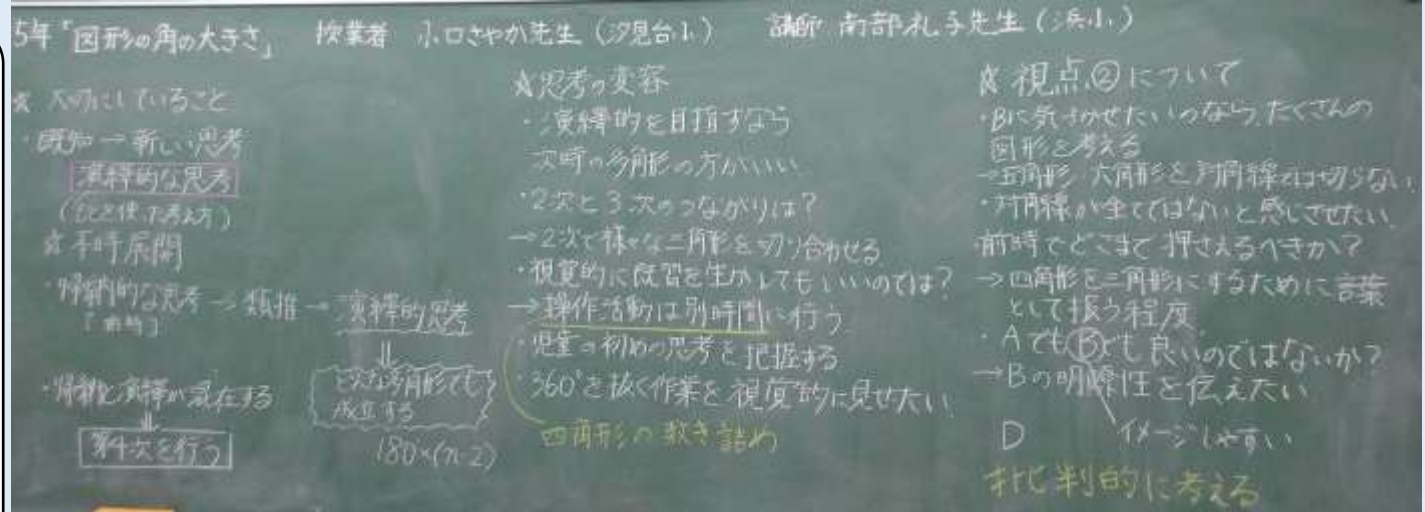 5年「図形の角の大きさ」 授業者 小口さやか先生（汐見台小） 講師 南部礼子先生（浜小）
☆大切にしていること
・既知→新しい思考
演繹的な思考
(きまりを使った考え方)
☆本時展開
・帰納的な思考→類推→演繹的思考
「前時」
⇓
どんな多角形でも
成立する
180×(n-2)
・帰納と演繹が混在する
⇓
第4次を行う
☆思考の変容
・演繹的を目指すなら
次時の多角形の方がいい
・2次と3次のつながりは？
→2次で様々な三角形を切り合わせる
・視覚的に既習を生かしてもいいのでは？
→操作活動は別時間に行う
・児童の初めの思考を把握する
・360°を抜く作業を視覚的に見せたい
四角形の敷き詰め
☆視点②について
・Bに気づかせたいのなら、たくさんの
図形を考える
→五角形、六角形を対角線では切らない
・対角線が全てではないと感じさせたい
前時でどこまで押さえるべきか？
→四角形を三角形にするために言葉
として扱う程度
・AでもⒷでも良いのではないか？
→Bの明瞭性を伝えたい
D イメージしやすい
批判的に考える